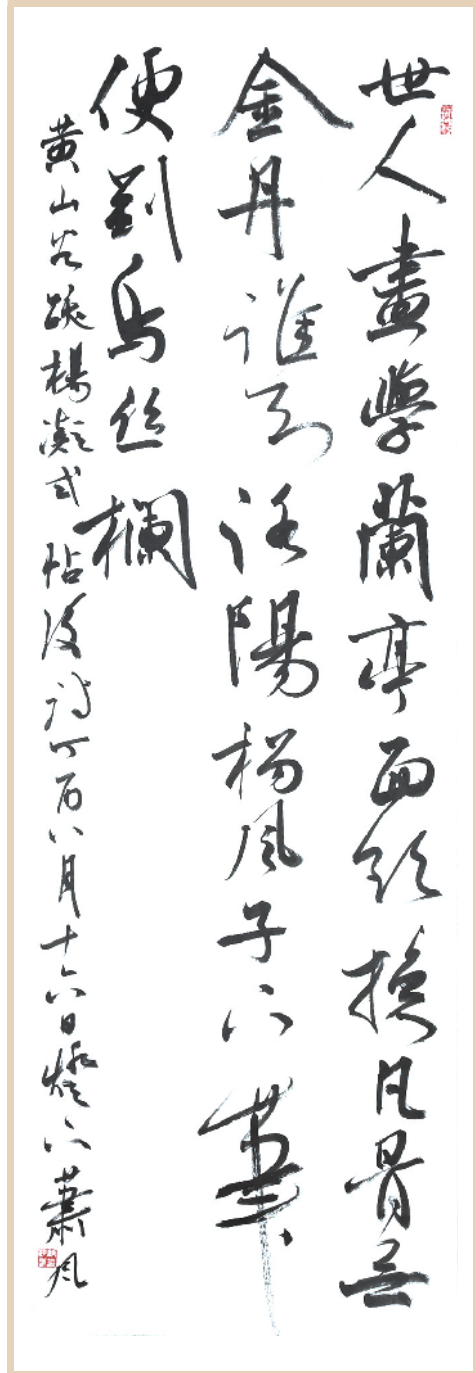 世人盡學蘭亭面欲換凡骨无
金丹誰知洛陽楊风子下筆
便到烏丝欄
黄山谷跋楊凝式帖後詩丁酉八月十六日燈下蕭风